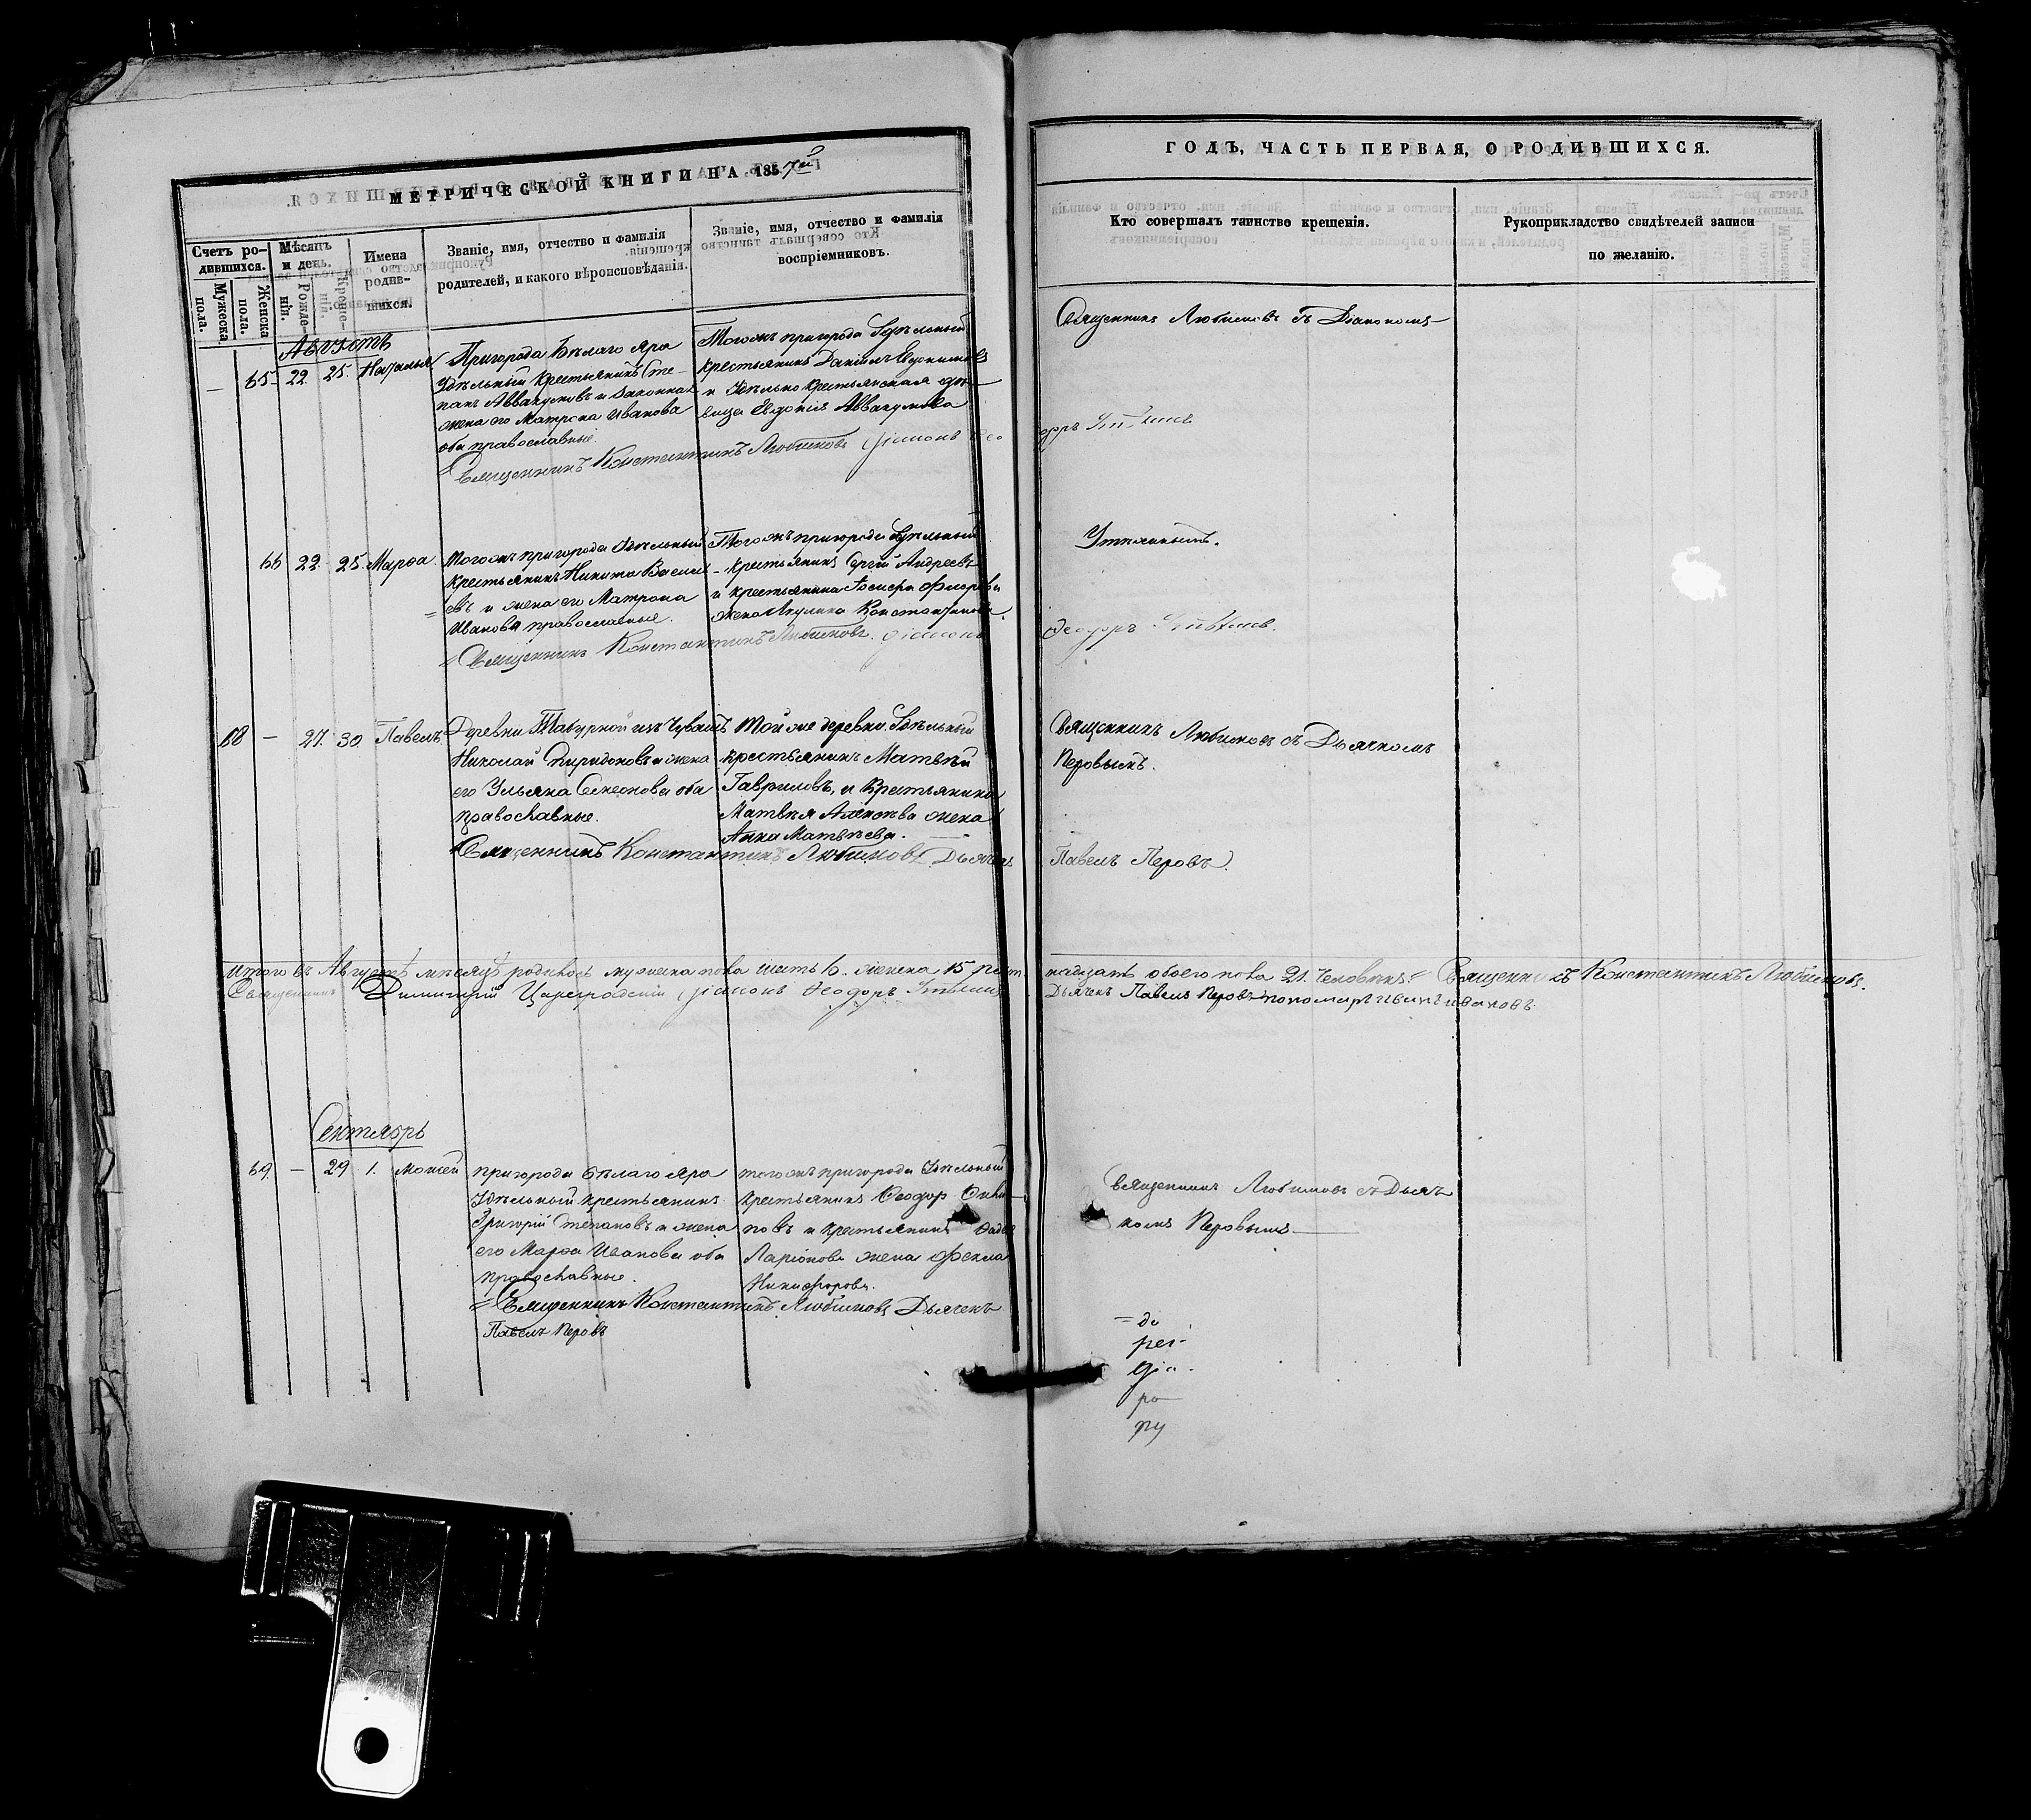 МЕТРИЧЕСКОЙ КНИГИ НА 1857й
ГОДЪ, ЧАСТЬ ПЕРВАЯ, О РОДИВШИХСЯ.
Счетъ родившихся.
Мужеска пола.
Женска пола.
Мѣсяцъ и день.
Рожденія.
Крещенія.
Имена родившихся.
Званіе, имя, отчество и фамилія
родителей, и какого вѣроисповѣданія.
Званіе, имя, отчество и фамилія
воспріемниковъ.
Кто совершалъ таинство крещенія.
Рукоприкладство свидѣтелей записи
по желанію.
Августъ
— 65. 22. 25. Наталья
Пригорода Бѣлаго Яра
Удѣльный крестьянинъ Сте-
панъ Аввакумовъ и законная
жена его Матрона Иванова
оба православные.
Тогожъ пригорода Удѣльный
крестьянинъ Даніилъ Евдокимовъ
и Удѣльно крестьянская дѣ-
вица Евдокія Аввакумова
Священникъ Любимовъ съ Діакономъ
Священникъ Константинъ Любимовъ Діаконъ Ѳео
доръ
66 22 25. Марѳа
Тогожъ пригорода Удѣльный
крестьянинъ Никита Василь-
евъ и жена его Матрона
Иванова православные.
Тогожъ пригорода Удѣльный
крестьянинъ Сергій Андреевъ
и крестьянина Іосифа Флорова
жена Акулина Константинова.
Священникъ Константинъ Любимовъ. Діаконъ
Ѳеодоръ
68 — 27. 30. Павелъ
Деревни изъ Чувашъ
Николай Спиридоновъ и жена
его Ульяна Семенова оба
православные.
Той же деревни Удѣльный
крестьянинъ Матвѣй
Гавриловъ, и крестьянина
Матвѣя Алексѣева жена
Анна Матвѣева.
Священникъ Любимовъ съ Дьячкомъ
Перовымъ.
Священникъ Константинъ Любимовъ Дьячекъ
Павелъ Перовъ.
Итого въ Августѣ мѣсяцѣ родилось мужеска пола шесть 6. женска 15 пят-
надцать обоего пола 21. человѣкъ. Священникъ Константинъ Любимовъ.
Священникъ Димитрій Цареградскій Діаконъ Ѳеодоръ
Дьячекъ Павелъ Перовъ пономарь Иванъ Ивановъ.
Сентябрь
69. — 29 1. Моисей
пригорода Бѣлаго Яра
Удѣльный крестьянинъ
Григорій Степановъ и жена
его Марѳа Иванова оба
православные.
тогожъ пригорода Удѣльный
крестьянинъ Ѳеодор
повъ и крестьянина
Ларіонова жена Фекла
Никифорова.
Священникъ Любимовъ съ Дьяч
комъ Перовымъ
Священникъ Константинъ Любимовъ Дьячекъ
Павелъ Перовъ
= до
рег-
діа-
ро
ру